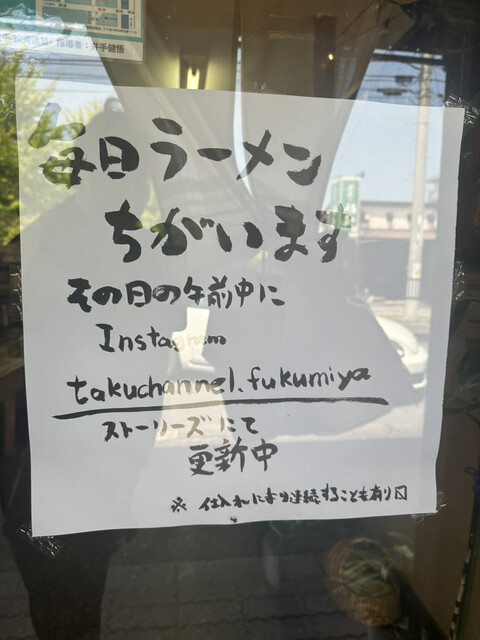 指導者：井手健悟
毎日ラーメン
ちがいます
その日の午前中に
Instagram
takuchannel.fukumiya
ストーリーズにて
更新中
※ 仕入れにより連続することも有り〼